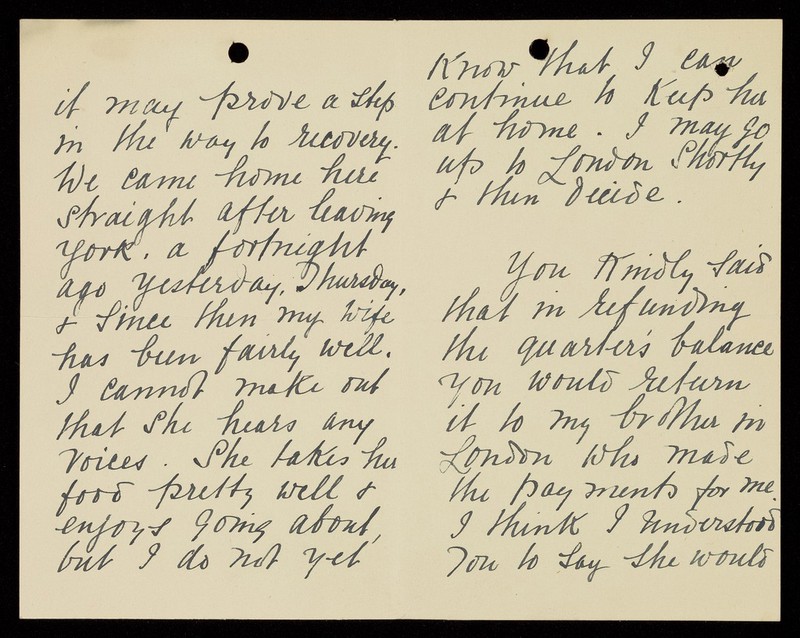 it may prove a step
in the way to recovery.
We came home here
straight after leaving
York, a fortnight
ago yesterday, Thursday,
& since then my wife
has been fairly well.
I cannot make out
that she hears any
voices. She takes her
food pretty well &
enjoys going about,
but I do not yet
Know that I can
continue to Keep her
at home. I may go
up to London shortly
& then decide.
You Kindly said
that in refunding
the quarter's balance
you would return
it to my brother in
London who made
the payments for me.
I think I understood
you to say she would